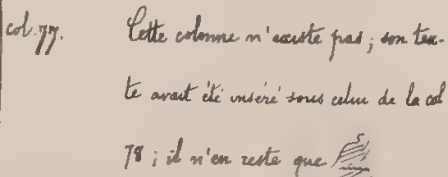 col. 77. Cette colonne n'existe pas ; son tex-
te avait été inséré sous celui de la col
78 ; il n'en reste que